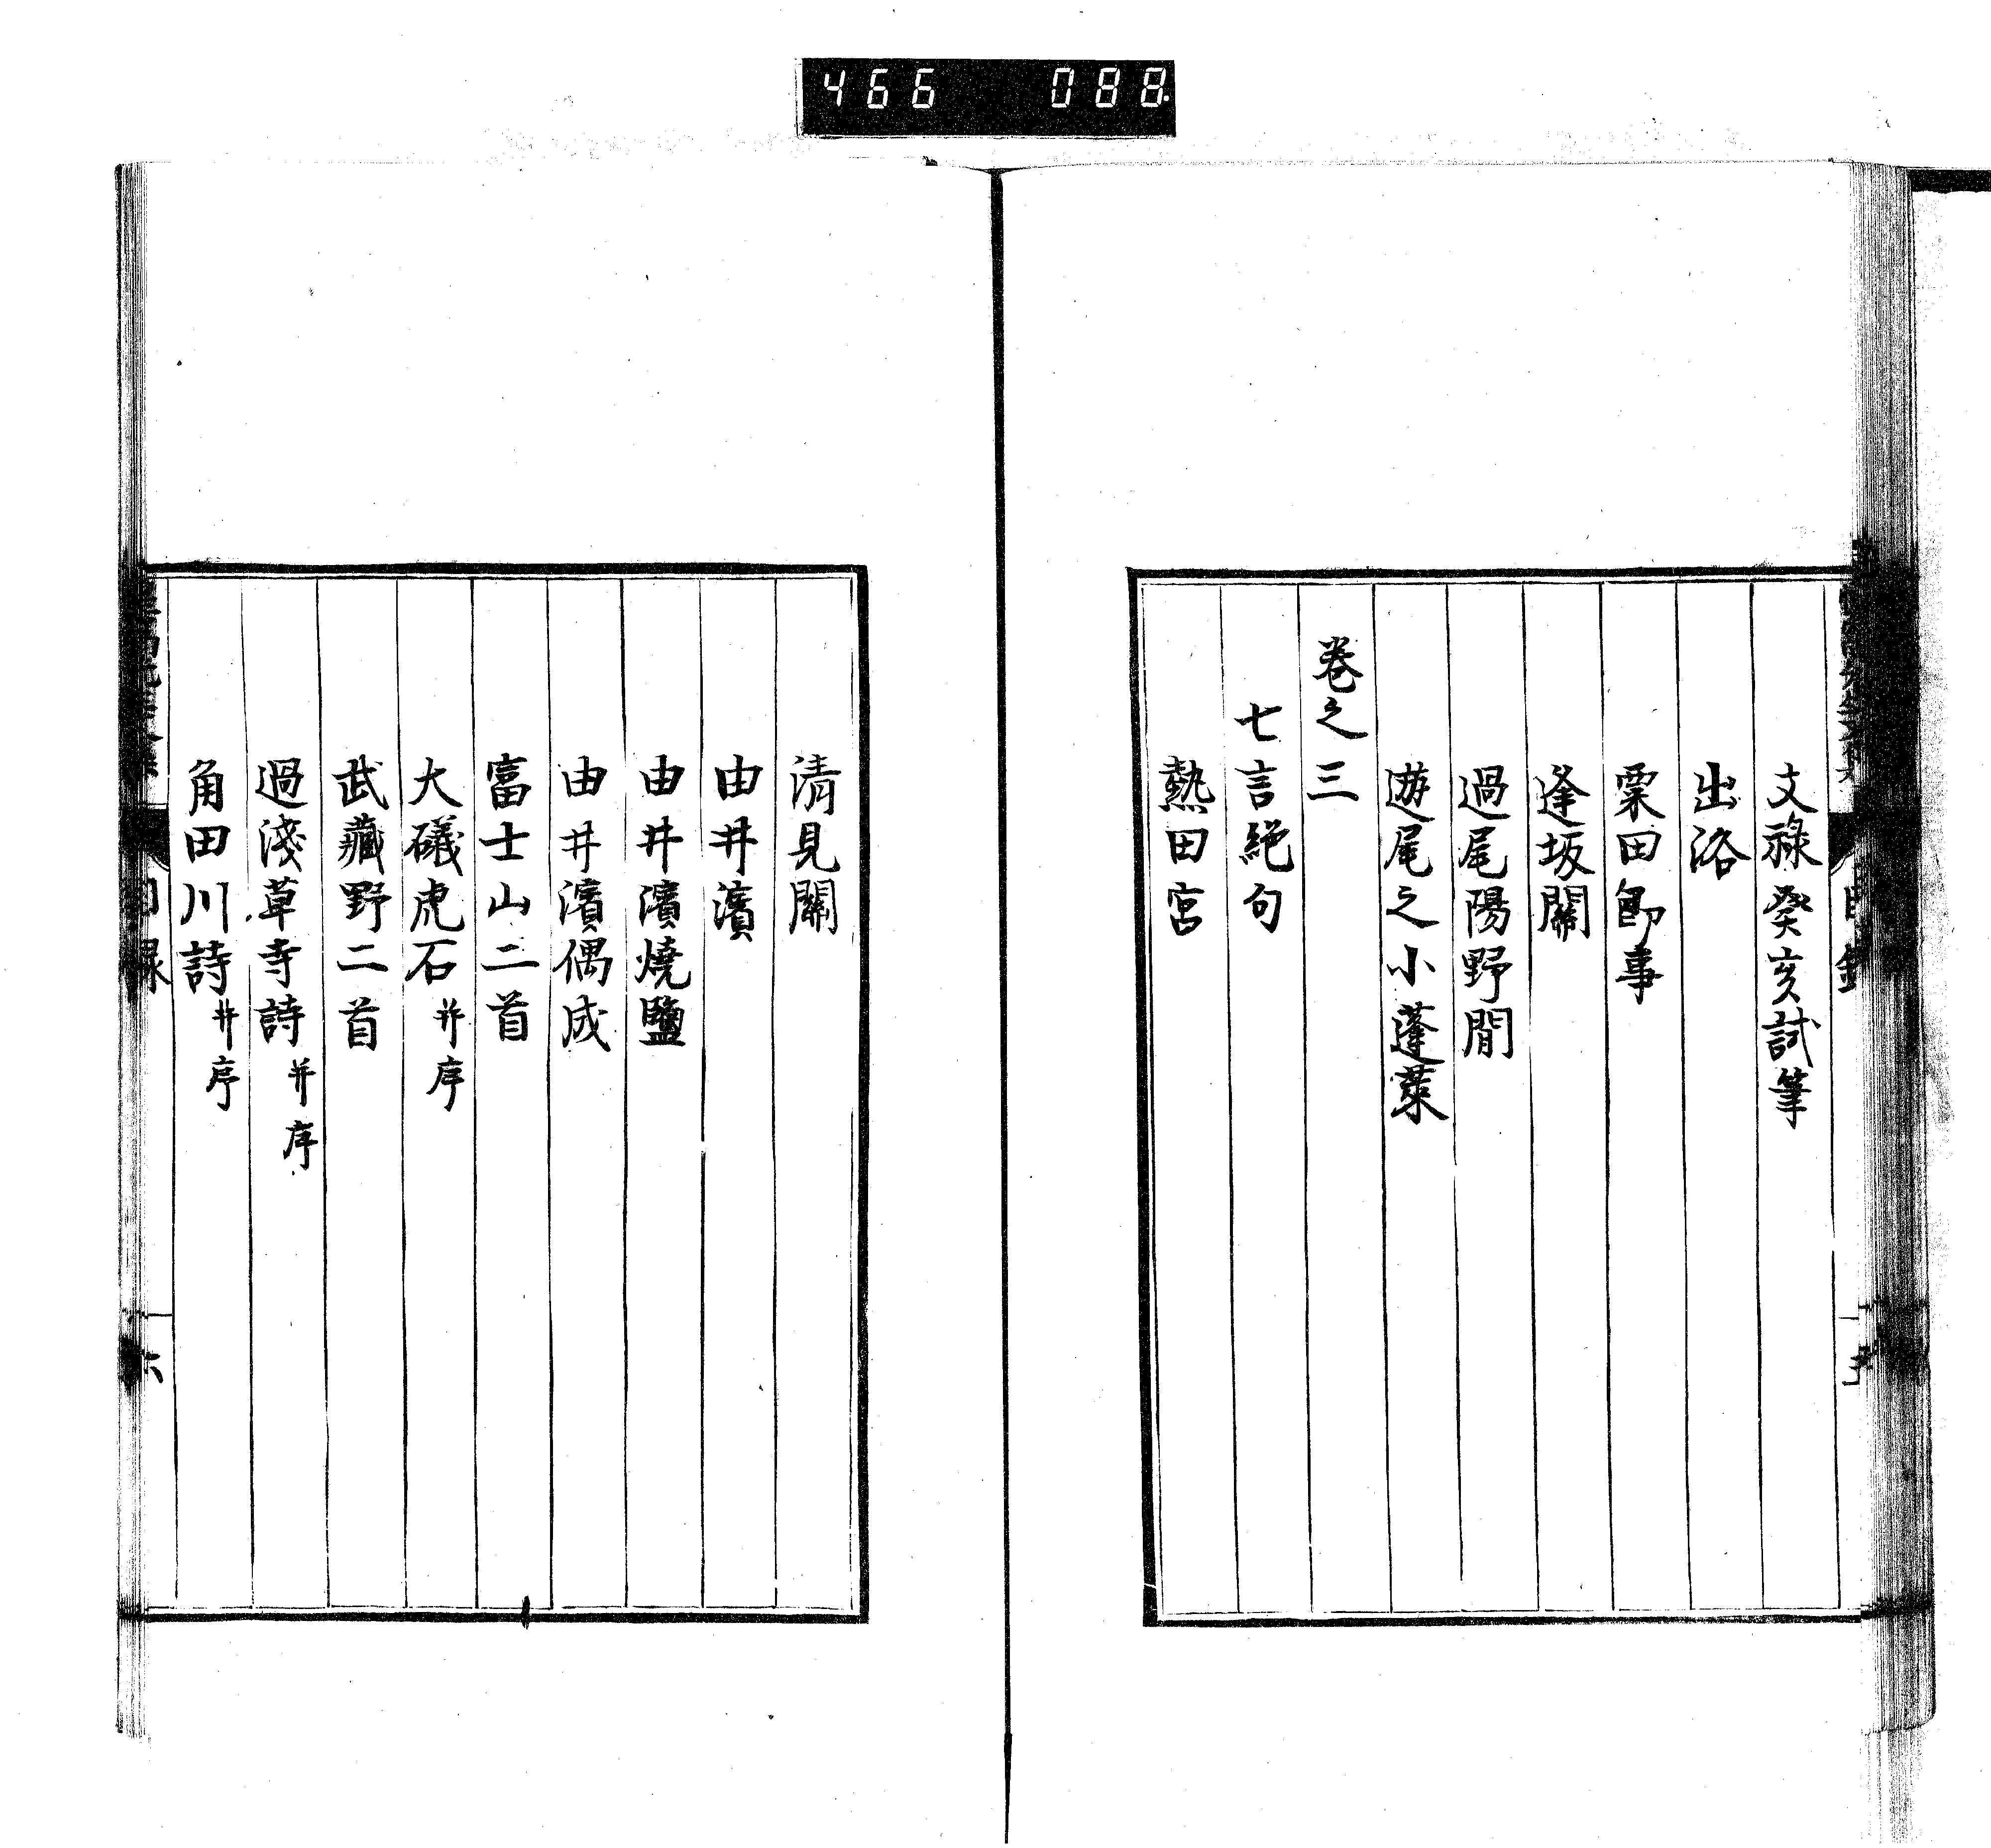 466 088
文祿癸亥試筆
出洛
粟田即事
逢坂關
過尾陽野間
遊尾之小蓬萊
卷之三
七言絕句
熱田宮
清見關
由井濱
由井濱燒鹽
由井濱偶成
富士山二首
大礒虎石并序
武藏野二首
過淺草寺詩并序
角田川詩并序
目錄